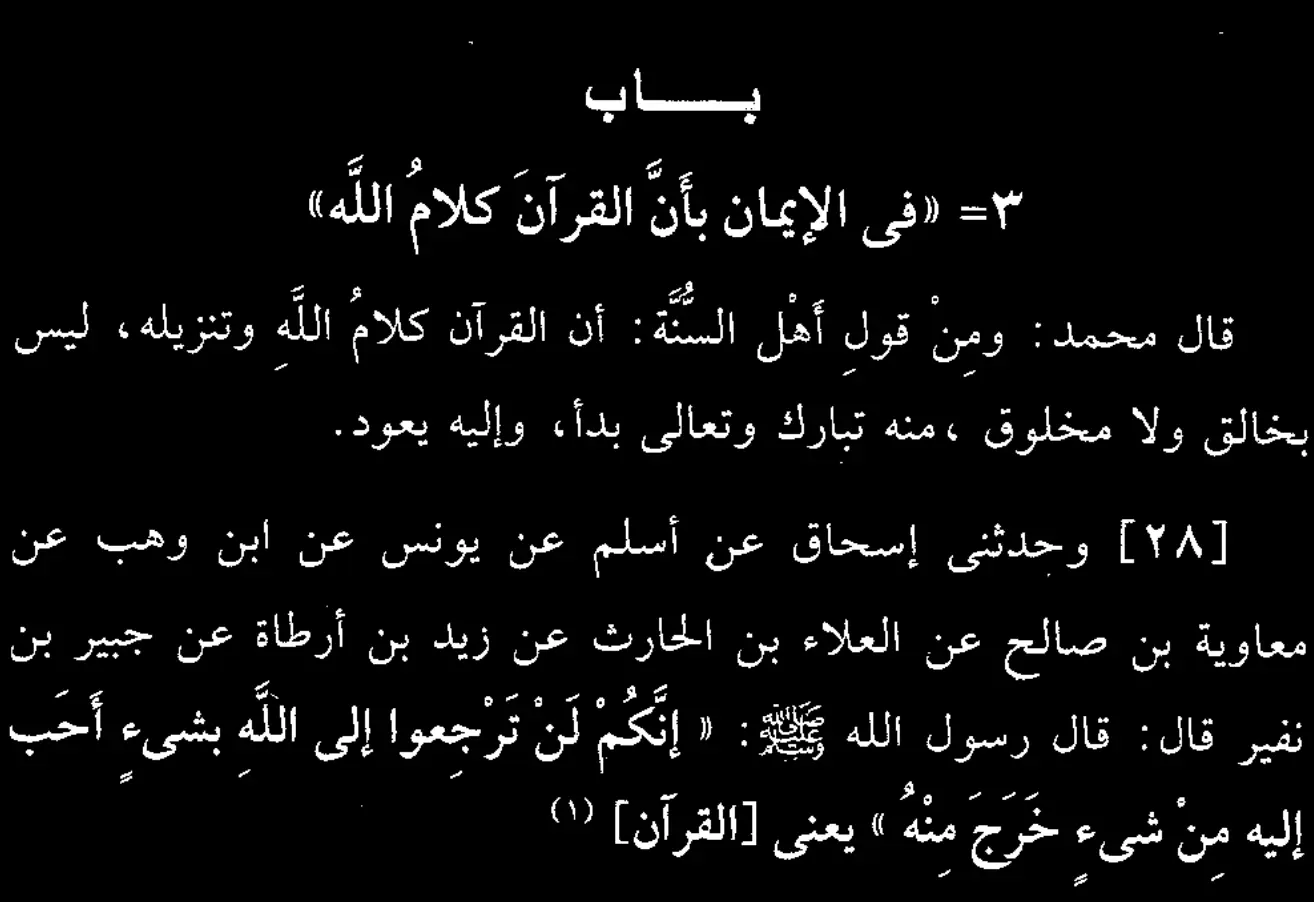 بـــــاب
٣= «فى الإيمان بأَنَّ القرآنَ كلامُ اللَّه»
قال محمد: ومِنْ قولِ أَهْلِ السُّنَّة: أن القرآن كلامُ اللَّهِ وتنزيله، ليس
بخالق ولا مخلوق، منه تبارك وتعالى بدأ، وإليه يعود.
[٢٨] وحدثنى إسحاق عن أسلم عن يونس عن ابن وهب عن
معاوية بن صالح عن العلاء بن الحارث عن زيد بن أرطاة عن جبير بن
نفير قال: قال رسول الله ﷺ: « إنَّكُمْ لَنْ تَرْجِعوا إلى اللَّهِ بشىءٍ أَحَب
إليه مِنْ شىءٍ خَرَجَ مِنْهُ » يعنى [القرآن] (١)